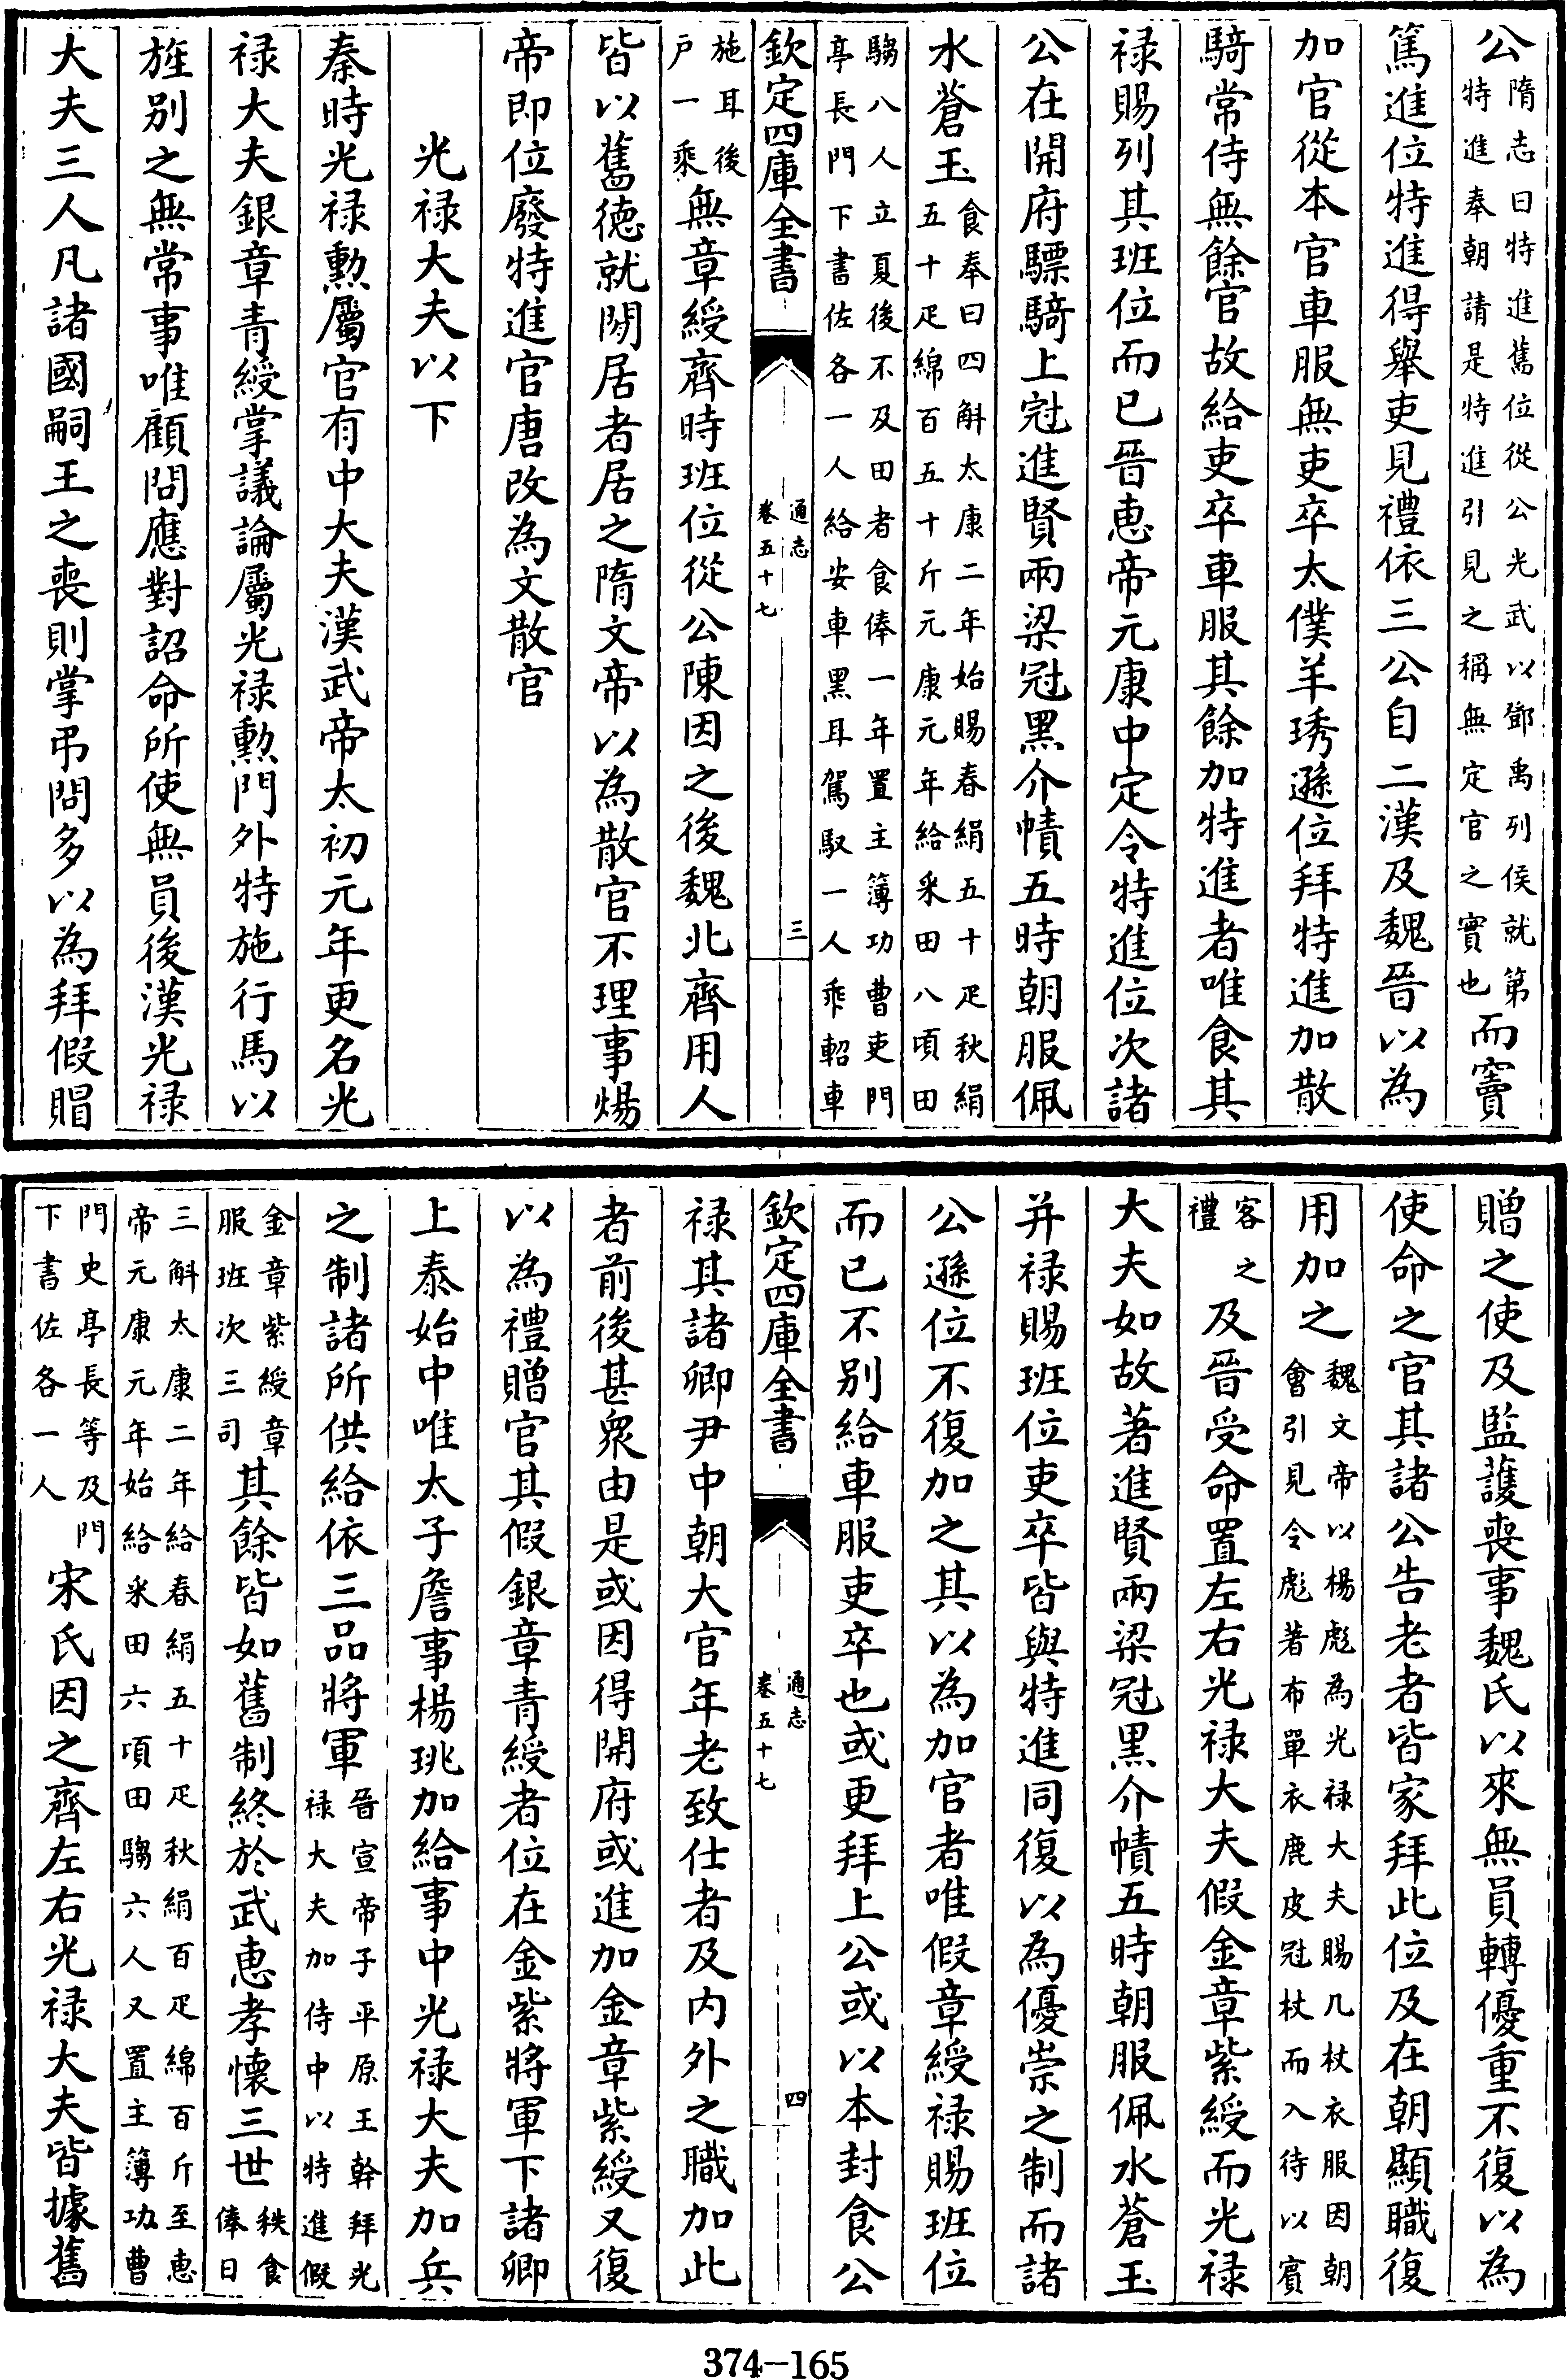 公隋志曰特進舊位從公光武以鄧禹列侯就第特進奉朝請是特進引見之稱無定官之實也而竇
篤進位特進得舉吏見禮依三公自二漢及魏晉以為
加官從本官車服無吏卒太僕羊琇遜位拜特進加散
騎常侍無餘官故給吏卒車服其餘加特進者唯食其
禄賜列其班位而已晉惠帝元康中定令特進位次諸
公在開府驃騎上冠進賢兩梁冠黑介幘五時朝服佩
水蒼玉食奉日四斛太康二年始賜春絹五十疋秋絹五十疋綿百五十斤元康元年給采田八頃田
騶八人立夏後不及田者食俸一年置主簿功曹吏門亭長門下書佐各一人給安車黑耳駕馭一人乘軺車
欽定四庫全書
通志
卷五十七
三
施耳後户一乘無章綬齊時班位從公陳因之後魏北齊用人
皆以舊徳就閒居者居之隋文帝以為散官不理事煬
帝即位廢特進官唐改為文散官
光禄大夫以下
秦時光禄勲屬官有中大夫漢武帝太初元年更名光
禄大夫銀章青綬掌議論屬光禄勲門外特施行馬以
旌别之無常事唯顧問應對詔命所使無員後漢光禄
大夫三人凡諸國嗣王之喪則掌弔問多以為拜假賵
贈之使及監護喪事魏氏以來無員轉優重不復以為
使命之官其諸公告老者皆家拜此位及在朝顯職復
用加之魏文帝以楊彪為光禄大夫賜几杖衣服因朝會引見令彪著布單衣鹿皮冠杖而入待以賓
客之禮及晉受命置左右光禄大夫假金章紫綬而光禄
大夫如故著進賢兩梁冠黑介幘五時朝服佩水蒼玉
并禄賜班位吏卒皆與特進同復以為優崇之制而諸
公遜位不復加之其以為加官者唯假章綬禄賜班位
而已不别給車服吏卒也或更拜上公或以本封食公
欽定四庫全書
通志
卷五十七
四
禄其諸卿尹中朝大官年老致仕者及内外之職加此
者前後甚衆由是或因得開府或進加金章紫綬又復
以為禮贈官其假銀章青綬者位在金紫將軍下諸卿
上泰始中唯太子詹事楊珧加給事中光禄大夫加兵
之制諸所供給依三品將軍晉宣帝子平原王幹拜光禄大夫加侍中以特進假
金章紫綬章服班次三司其餘皆如舊制終於武惠孝懷三世秩食俸日
三斛太康二年給春絹五十疋秋絹百疋綿百斤至惠帝元康元年始給采田六頃田騶六人又置主簿功曹
門史亭長等及門下書佐各一人宋氏因之齊左右光禄大夫皆據舊
374-165